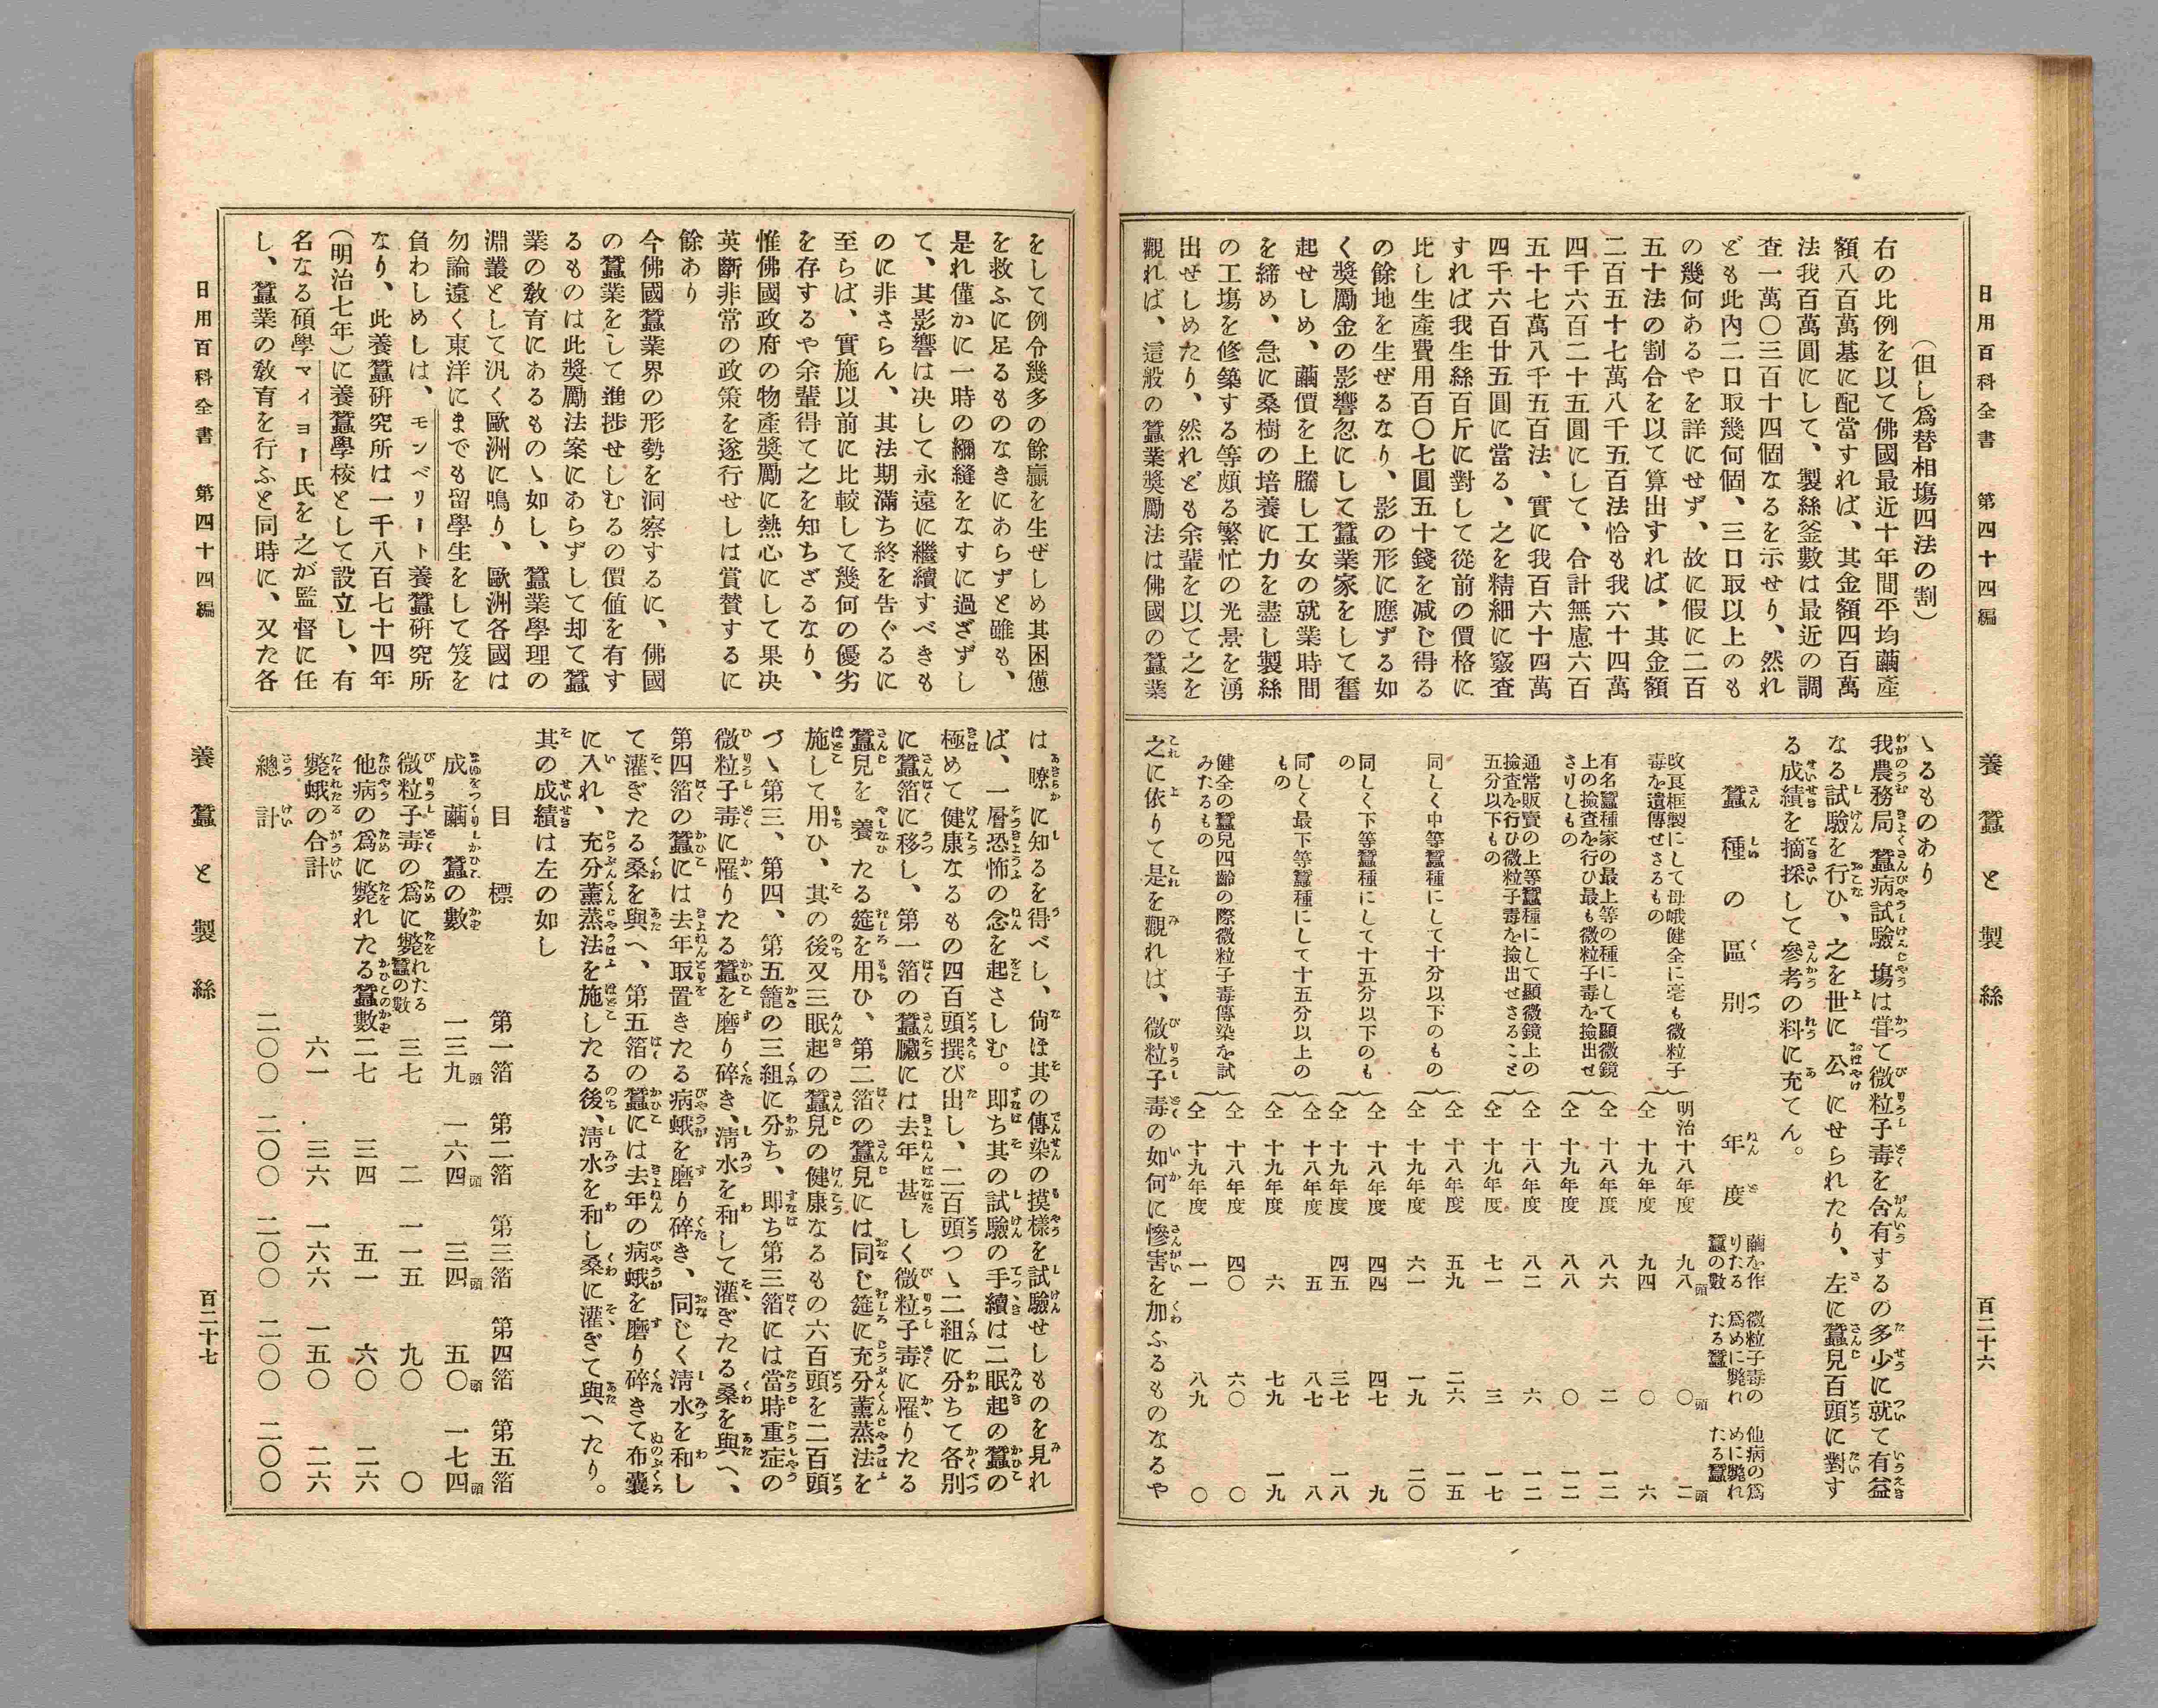 日用百科全書　第四十四編
養蠶と製絲
百二十六
（但し爲替相塲四法の割）
右の比例を以て佛國最近十年間平均繭產
額八百萬基に配當すれば、其金額四百萬
法我百萬圓にして、製絲釜數は最近の調
査一萬〇三百十四個なるを示せり、然れ
ども此內二口取幾何個、三口取以上のも
の幾何あるやを詳にせず、故に假に二百
五十法の割合を以て算出すれば、其金額
二百五十七萬八千五百法恰も我六十四萬
四千六百二十五圓にして、合計無慮六百
五十七萬八千五百法、實に我百六十四萬
四千六百廿五圓に當る、之を精細に竅査
すれば我生絲百斤に對して從前の價格に
比し生產費用百〇七圓五十錢を減じ得る
の餘地を生ぜるなり、影の形に應ずる如
く獎勵金の影響忽にして蠶業家をして奮
起せしめ、繭價を上騰し工女の就業時間
を締め、急に桑樹の培養に力を盡し製絲
の工塲を修築する等頗る繁忙の光景を湧
出せしめたり、然れども余輩を以て之を
觀れば、這般の蠶業獎勵法は佛國の蠶業
ゝるものあり
我農務局蠶病試驗塲は甞て微粒子毒を含有するの多少に就て有益
なる試驗を行ひ、之を世に公にせられたり、左に蠶兒百頭に對す
る成績を摘採して參考の料に充てん。
蠶種の區別　年度　繭を作りたる蠶の數　微粒子毒の爲めに斃れたる蠶　他病の爲めに斃れたる蠶
改良框製にして母蛾健全に毫も微粒子
毒を遺傳せさるもの
明治十八年度　九八頭　〇頭　二頭
仝　十九年度　九四　〇　六
有名蠶種家の最上等の種にして顯微鏡
上の撿査を行ひ最も微粒子毒を撿出せ
さりしもの
仝　十八年度　八六　二　一二
仝　十九年度　八八　〇　一二
通常販賣の上等蠶種にして顯微鏡上の
撿査を行ひ微粒子毒を撿出せさること
五分以下もの
仝　十八年度　八二　六　一二
仝　十九年度　七一　三　一七
同しく中等蠶種にして十分以下のもの
仝　十八年度　五九　二六　一五
仝　十九年度　六一　一九　二〇
同しく下等蠶種にして十五分以下のも
の
仝　十八年度　四四　四七　九
仝　十九年度　四五　三七　一八
同しく最下等蠶種にして十五分以上の
もの
仝　十八年度　五　八七　八
仝　十九年度　六　七九　一九
健全の蠶兒四齡の際微粒子毒傳染を試
みたるもの
仝　十八年度　四〇　六〇　〇
仝　十九年度　一一　八九　〇
之に依りて是を觀れば、微粒子毒の如何に慘害を加ふるものなるや
をして例令幾多の餘贏を生ぜしめ其困憊
を救ふに足るものなきにあらずと雖も、
是れ僅かに一時の彌縫をなすに過ざずし
て、其影響は决して永遠に繼續すべきも
のに非さらん、其法期滿ち終を告ぐるに
至らば、實施以前に比較して幾何の優劣
を存するや余輩得て之を知ちざるなり、
惟佛國政府の物產獎勵に熱心にして果决
英斷非常の政策を遂行せしは賞賛するに
餘あり
今佛國蠶業界の形勢を洞察するに、佛國
の蠶業をして進捗せしむるの價値を有す
るものは此獎勵法案にあらずして却て蠶
業の敎育にあるものゝ如し、蠶業學理の
淵叢として汎く歐洲に鳴り、歐洲各國は
勿論遠く東洋にまでも留學生をして笈を
負わしめしは、モンペリート養蠶硏究所
なり、此養蠶硏究所は一千八百七十四年
（明治七年）に養蠶學校として設立し、有
名なる碩學マイヨー氏を之が監督に任
し、蠶業の敎育を行ふと同時に、又た各
は瞭に知るを得べし、尙ほ其の傳染の摸樣を試驗せしものを見れ
ば、一層恐怖の念を起さしむ。卽ち其の試驗の手續は二眠起の蠶の
極めて健康なるもの四百頭撰び出し、二百頭つゝ二組に分ちて各別
に蠶箔に移し、第一箔の蠶臟には去年甚しく微粒子毒に罹りたる
蠶兒を養たる筵を用ひ、第二箔の蠶兒には同じ筵に充分薰蒸法を
施して用ひ、其の後又三眠起の蠶兒の健康なるもの六百頭を二百頭
づゝ第三、第四、第五籠の三組に分ち、卽ち第三箔には當時重症の
微粒子毒に罹りたる蠶を磨り碎き、淸水を和して灌ぎたる桑を與へ、
第四箔の蠶には去年取置きたる病蛾を磨り碎き、同じく淸水を和し
て灌ぎたる桑を與へ、第五箔の蠶には去年の病蛾を磨り碎きて布囊
に入れ、充分薰蒸法を施したる後、淸水を和し桑に灌ぎて與へたり。
其の成績は左の如し
目標　第一箔　第二箔　第三箔　第四箔　第五箔
成繭蠶の數　一三九頭　一六四頭　三四頭　五〇頭　一七四頭
微粒子毒の爲に斃れたる蠶の數　三七　二　一一五　九〇　〇
他病の爲に斃れたる蠶數　二七　三四　五一　六〇　二六
斃蛾の合計　六一　三六　一六六　一五〇　二六
總計　二〇〇　二〇〇　二〇〇　二〇〇　二〇〇
日用百科全書　第四十四編
養蠶と製絲
百二十七